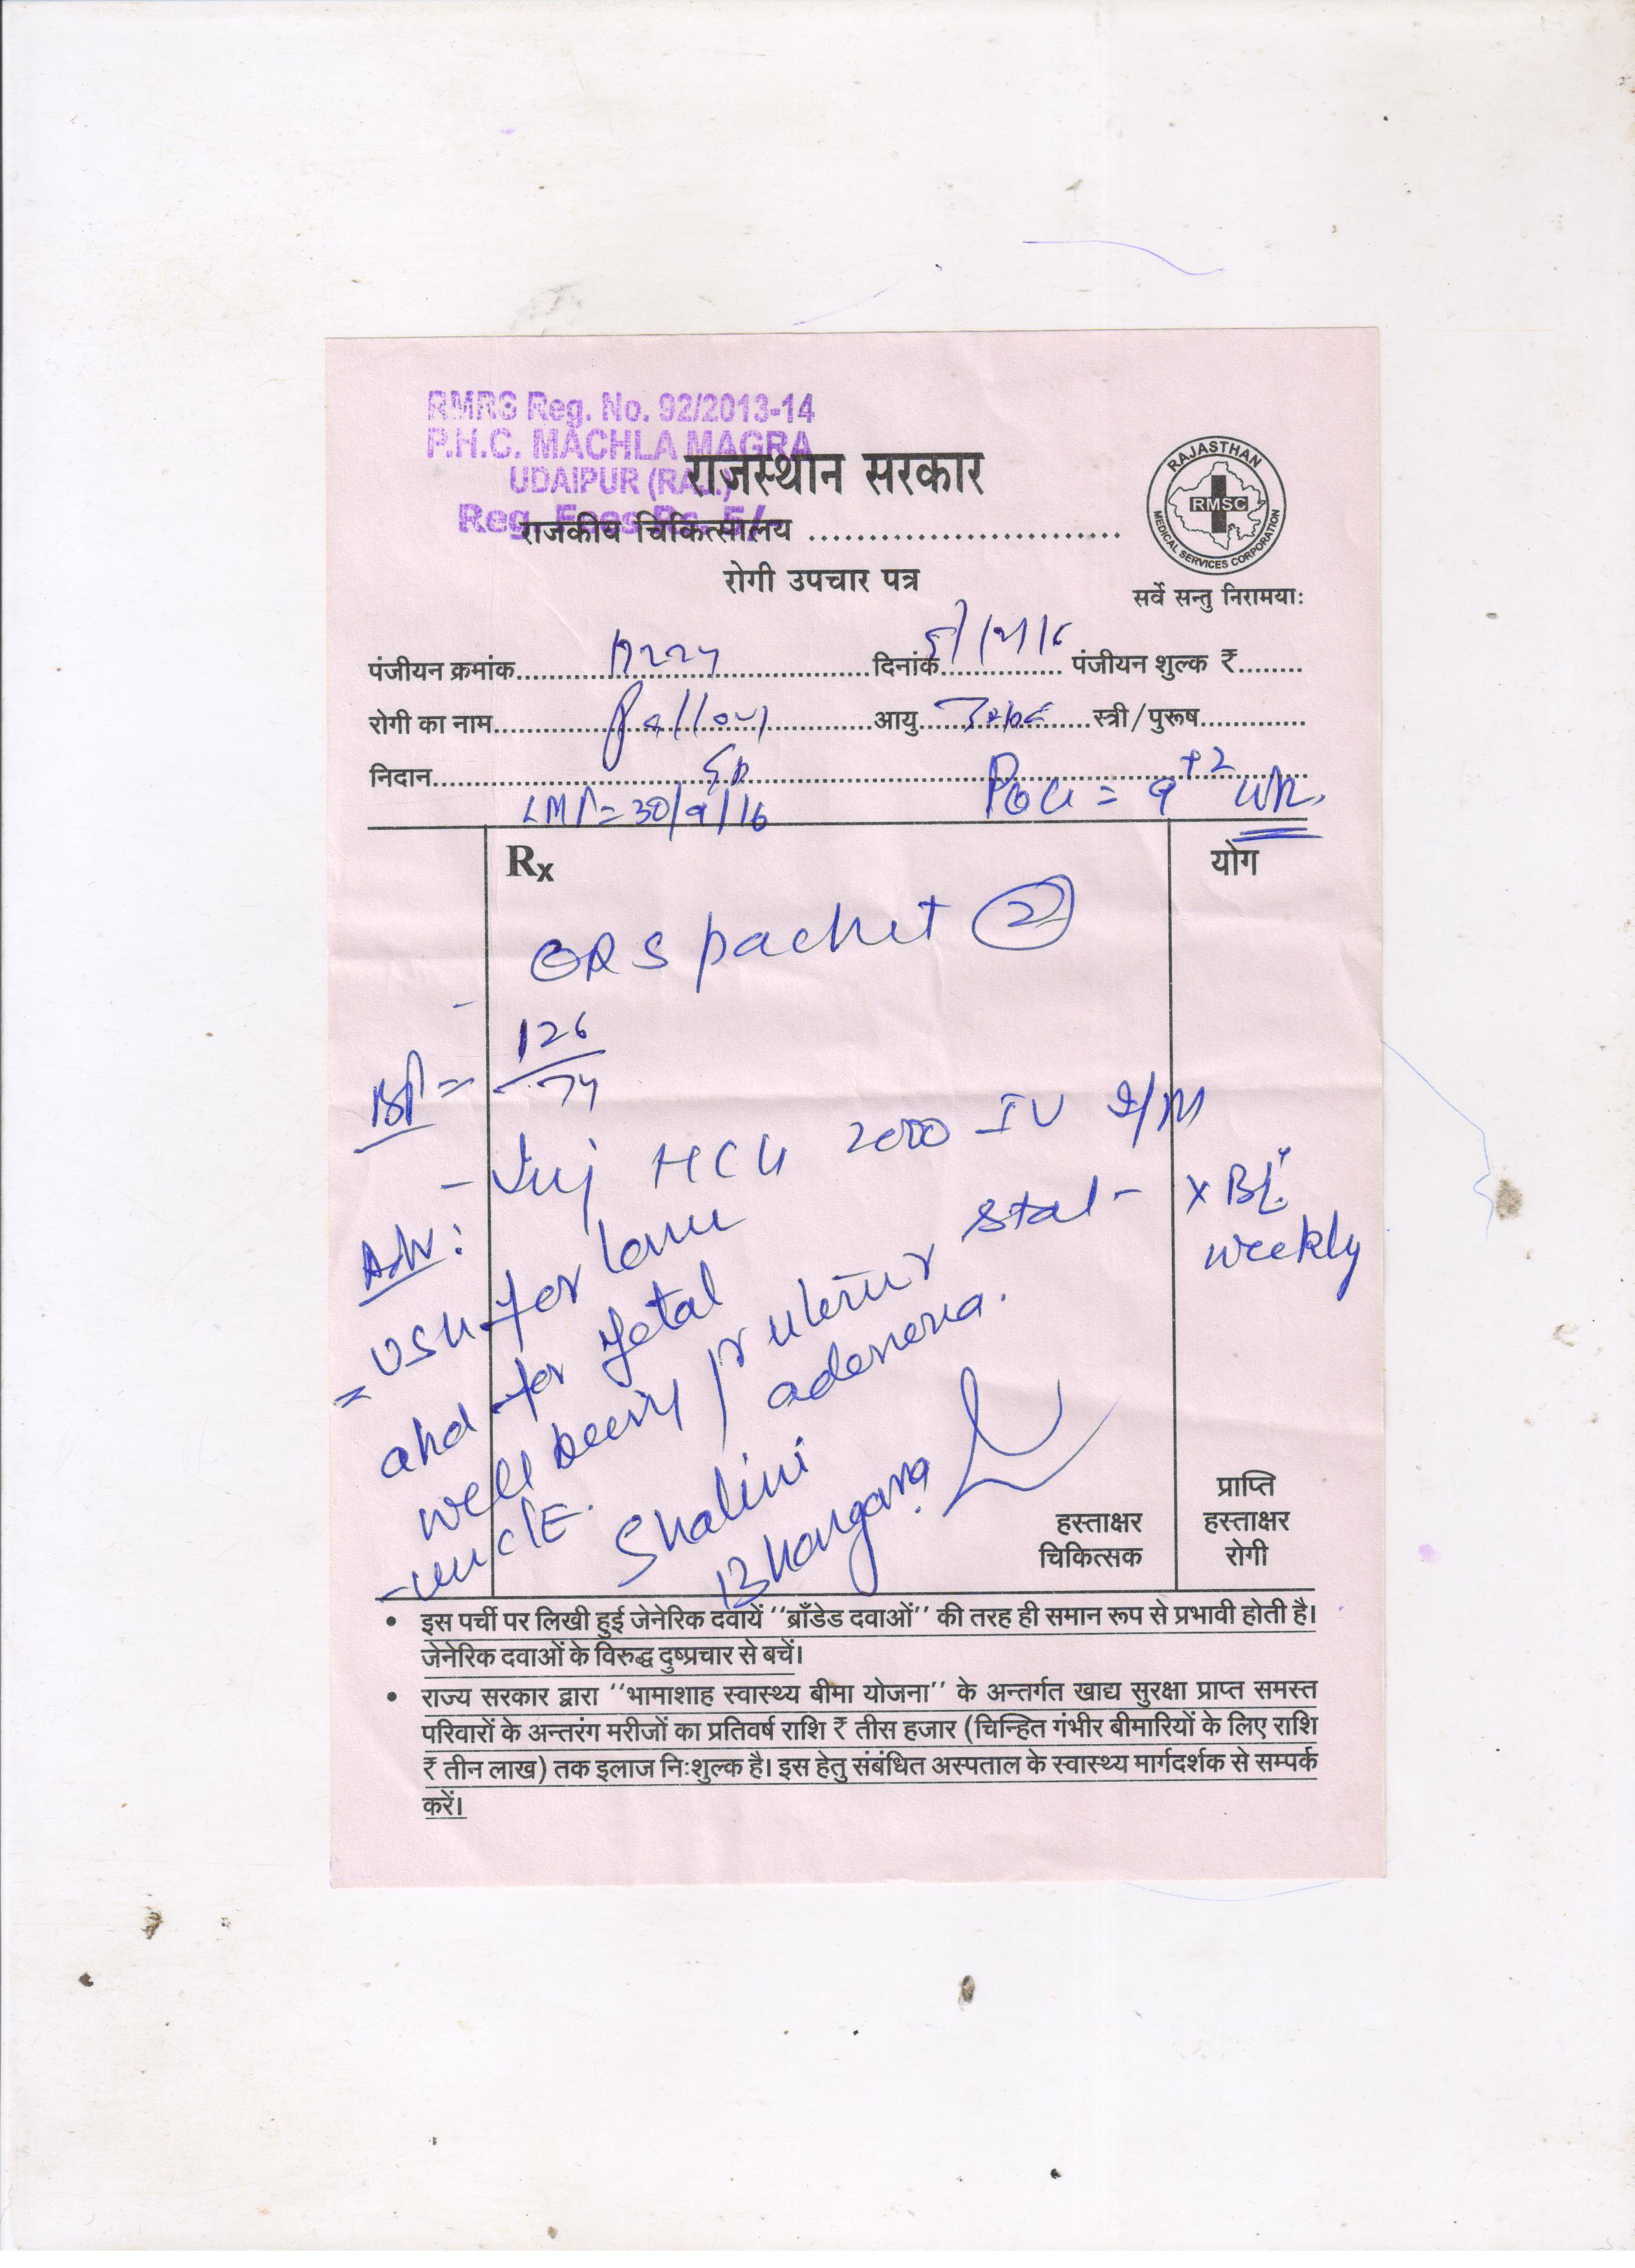 RMRS Reg. No. 92/2013-14
P.H.C. MACHLA MAGRA
UDAIPUR (RAJ.)
Reg. Fees Rs. 5/-
राजस्थान सरकार
राजकीय चिकित्सालय ..........................
रोगी उपचार पत्र
RAJASTHAN
RMSC
MEDICAL SERVICES CORPORATION
सर्वे सन्तु निरामयाः
पंजीयन क्रमांक.......... दिनांक.......... पंजीयन शुल्क ₹........
रोगी का नाम.......... आयु.......... स्त्री/पुरूष..........
निदान..........
LMP = 30/9/16 POG = 9+2 wk.
Rx
योग
ORS packet 2
BP = 126/74
- Inj HCG 2000 IU I/M
stat - x Bi weekly
Adv:
= USG for
and for fetal
well being / uterus
adenexa.
- Urine C/E.
Shalini
Bhargava
हस्ताक्षर
चिकित्सक
प्राप्ति
हस्ताक्षर
रोगी
• इस पर्ची पर लिखी हुई जेनेरिक दवायें ''ब्राँडेड दवाओं'' की तरह ही समान रूप से प्रभावी होती है।
जेनेरिक दवाओं के विरुद्ध दुष्प्रचार से बचें।
• राज्य सरकार द्वारा ''भामाशाह स्वास्थ्य बीमा योजना'' के अन्तर्गत खाद्य सुरक्षा प्राप्त समस्त
परिवारों के अन्तरंग मरीजों का प्रतिवर्ष राशि ₹ तीस हजार (चिन्हित गंभीर बीमारियों के लिए राशि
₹ तीन लाख) तक इलाज निःशुल्क है। इस हेतु संबंधित अस्पताल के स्वास्थ्य मार्गदर्शक से सम्पर्क
करें।